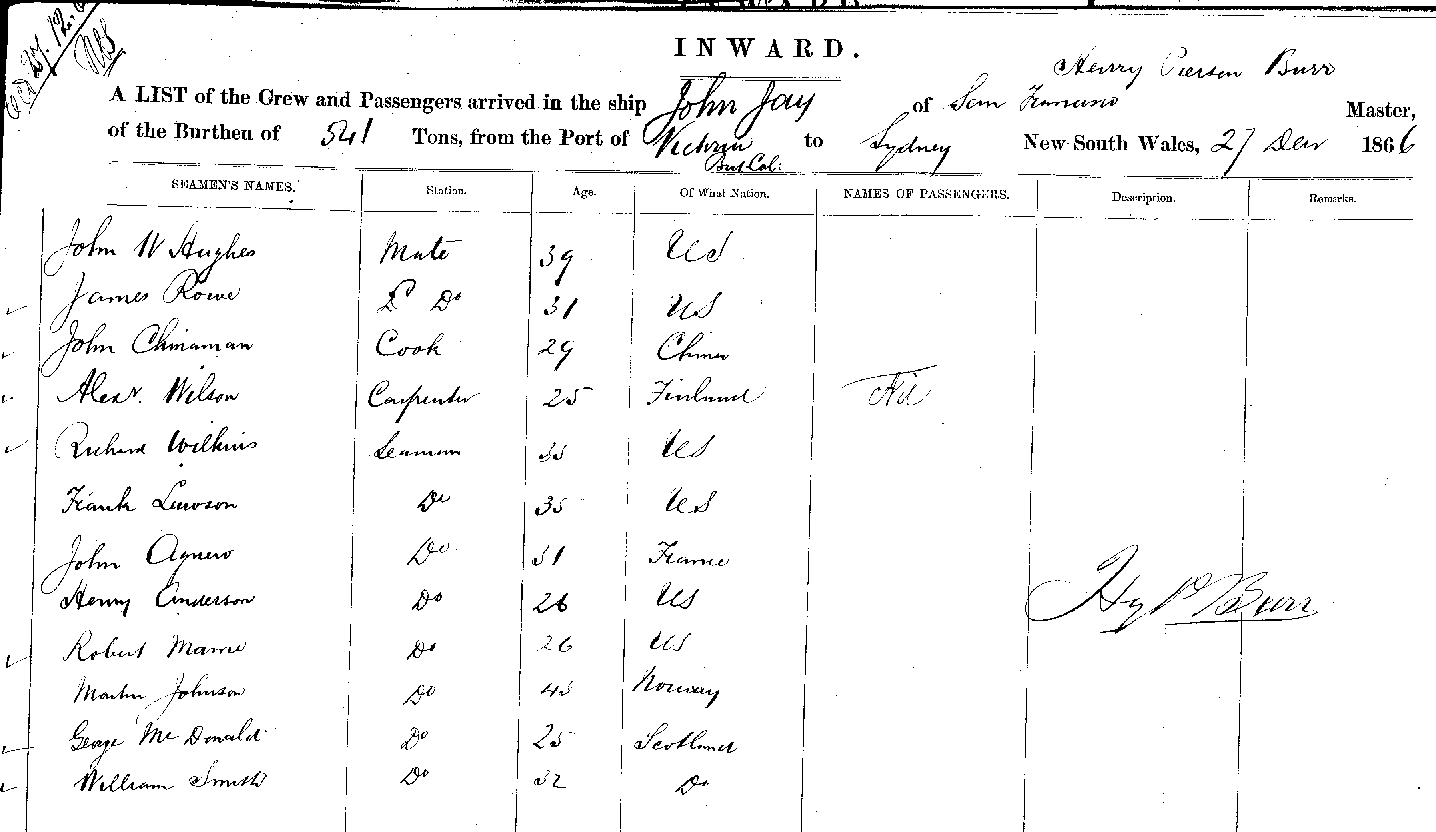 27.12.6
INWARD.
Henry Pierson Burr
A LIST of the Crew and Passengers arrived in the ship John Jay of San Francisco Master,
of the Burthen of 541 Tons, from the Port of Victoria to Sydney New South Wales, 27 Decr 1866
Brit Col:
SEAMEN'S NAMES. Station. Age. Of What Nation. NAMES OF PASSENGERS. Description. Remarks.
John W Hughes Mate 39 US
James Rowe 2d Do 31 US
John Chinaman Cook 29 China
Alexr. Wilson Carpenter 25 Finland Nil
Richard Wilkins Seaman 33 US
Frank Lawson Do 35 US
John Agnew Do 31 France
Henry Anderson Do 26 US
Hy P Burr
Robert Marne Do 26 US
Martin Johnson Do 43 Norway
George McDonald Do 25 Scotland
William Smith Do 32 Do